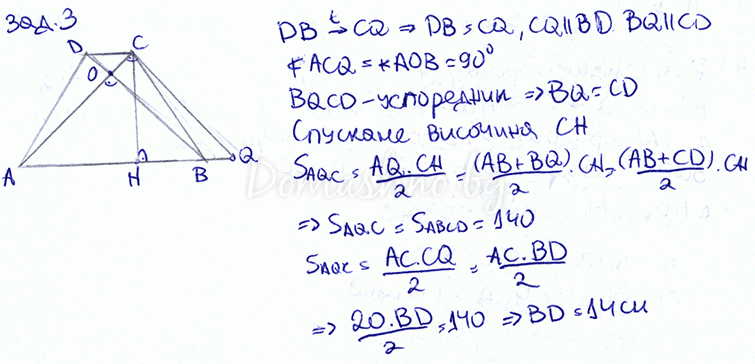 Зад.3
D C
O
A H B Q
DB t→ CQ ⇒ DB = CQ, CQ || BD BQ || CD
∢ACQ = ∢AOB = 90°
BQCD - успоредник ⇒ BQ = CD
Спускаме височина CH
S_AQC = AQ.CH/2 = (AB+BQ)/2 . CH = (AB+CD)/2 . CH
⇒ S_AQC = S_ABCD = 140
S_AQC = AC.CQ/2 = AC.BD/2
⇒ 20.BD/2 = 140 ⇒ BD = 14 см
Domashno.bg